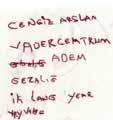 CENGIZ ARSLAN
VADERCENTRUM
ADEM
GEZALIG
ik LANG YEAR